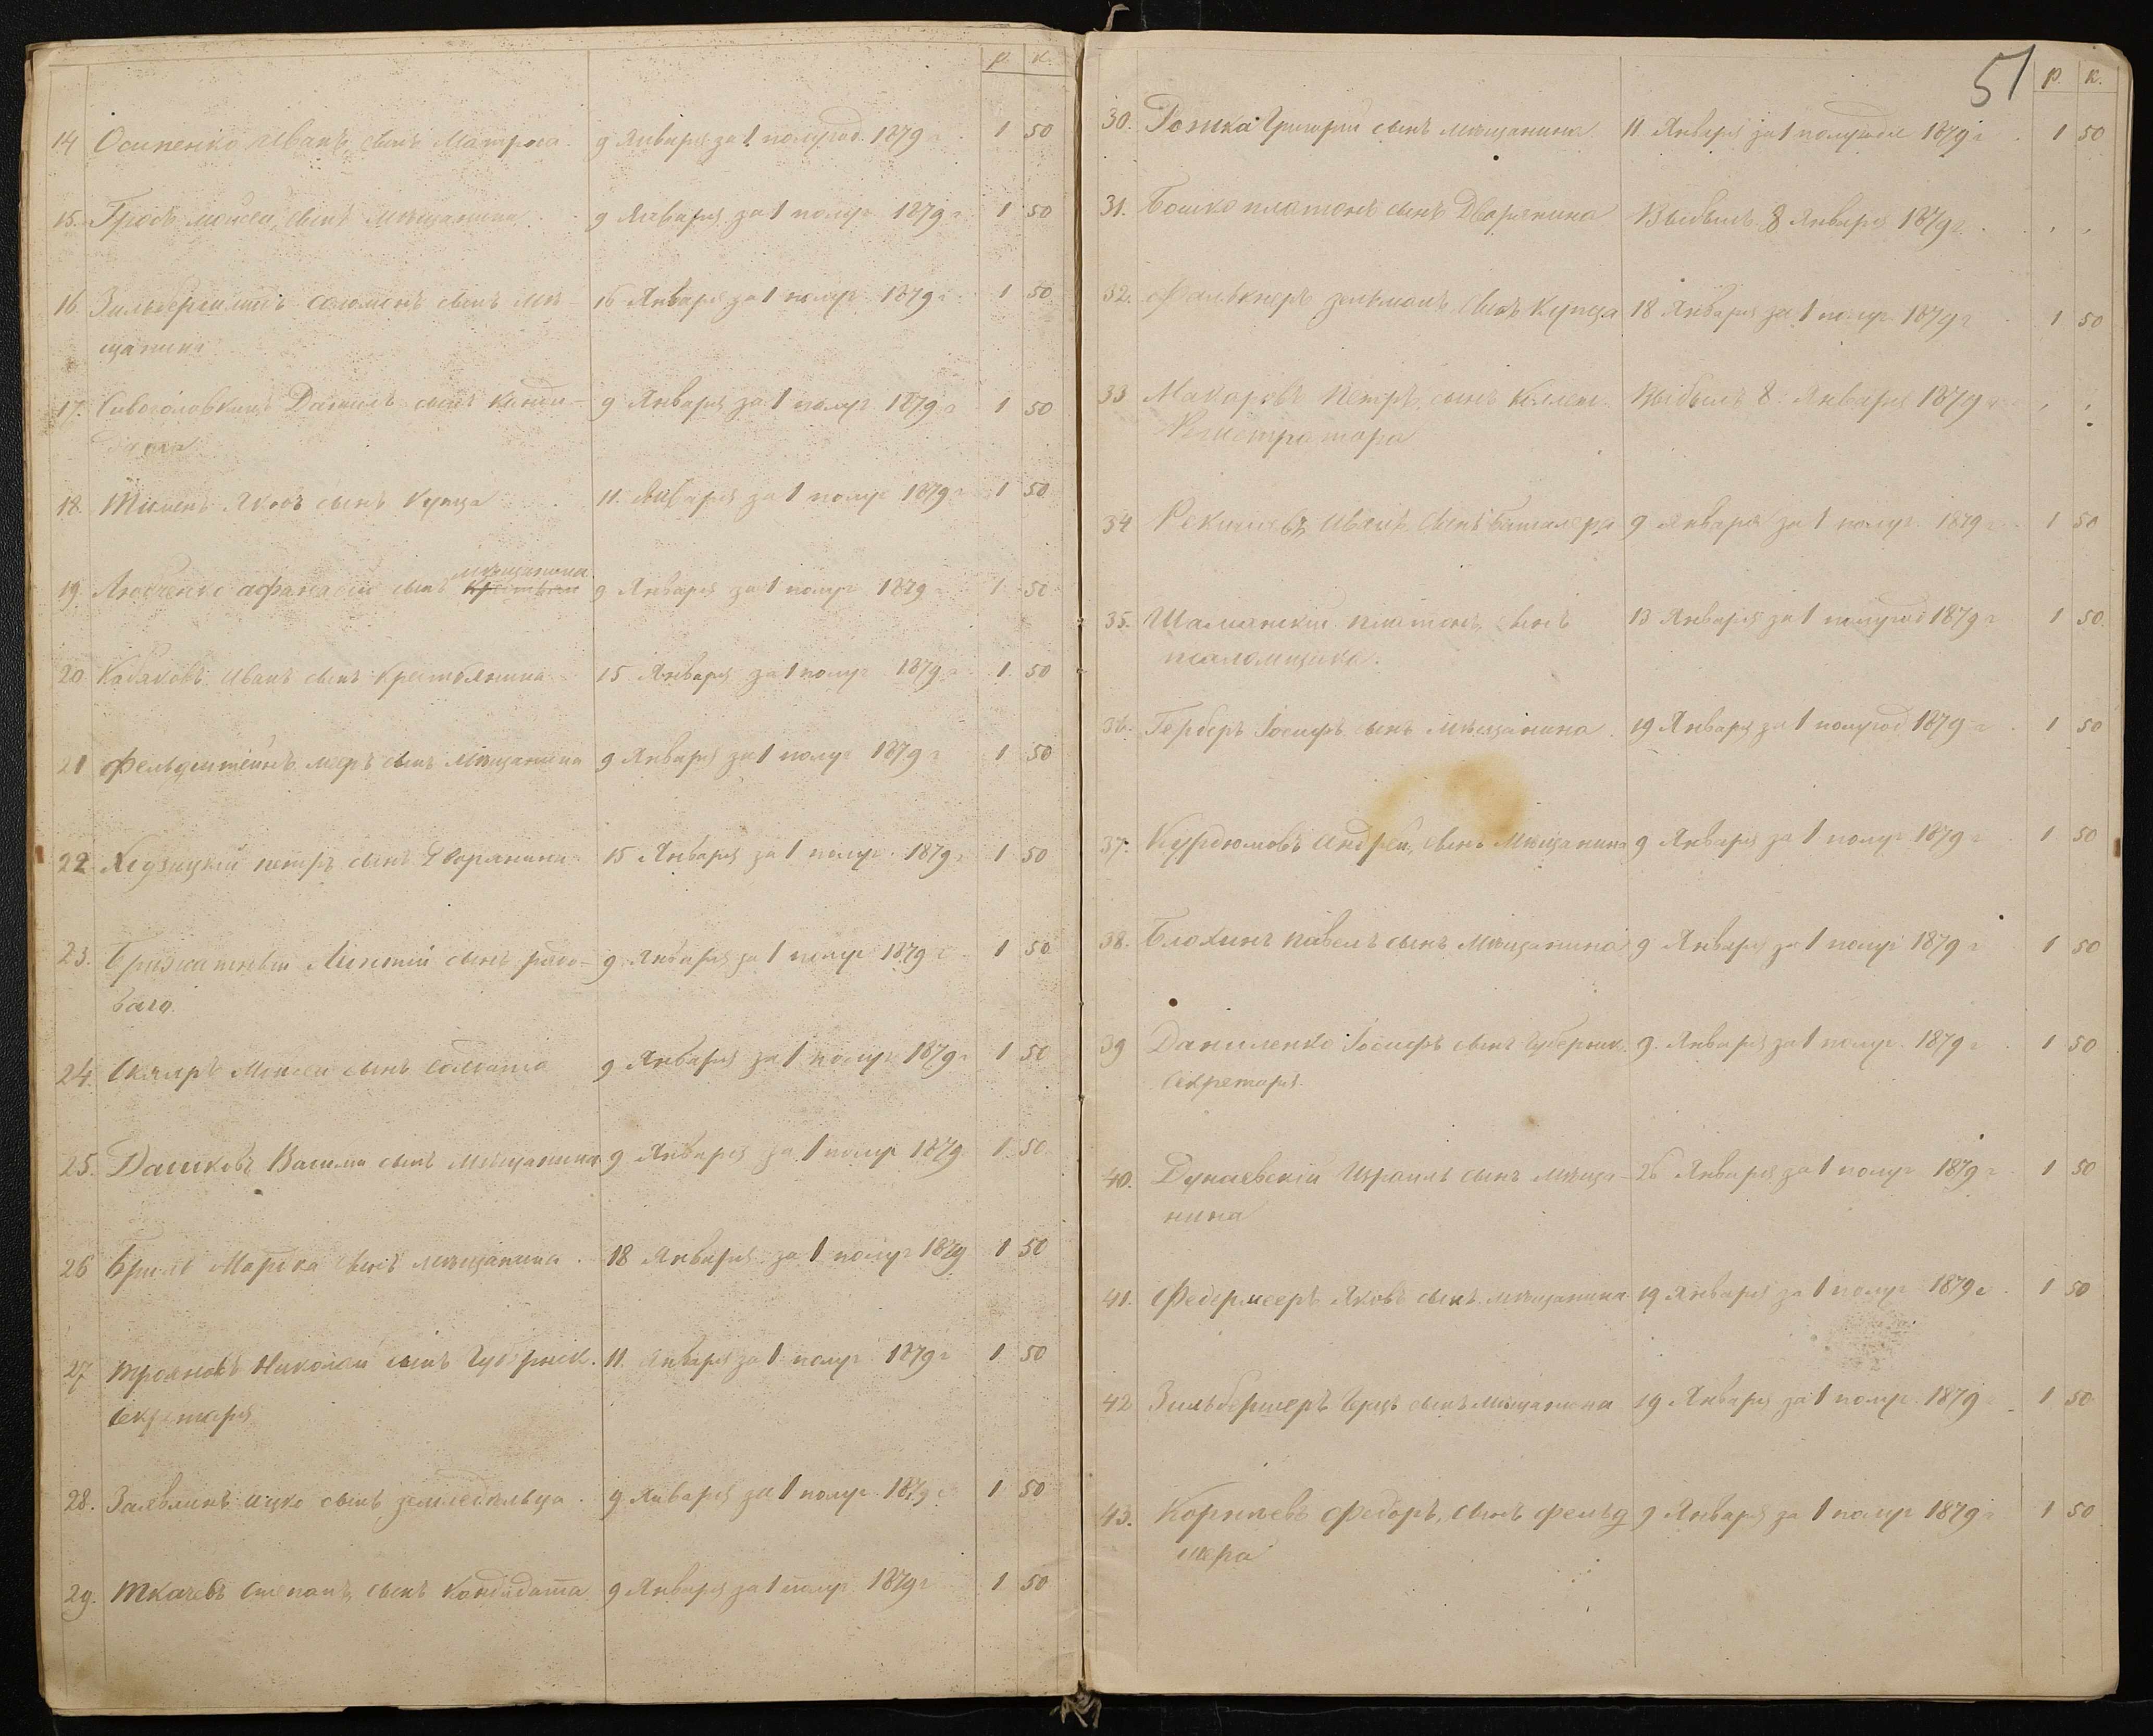 р. к.
14 Осипенко Иванъ, сынъ Матроса 9 Января за 1 полугод. 1879 г 1 50
15. Гробъ Моисей, сынъ мѣщанина 9 Января за 1 полуг. 1879 г. 1 50
16. Соломонъ сынъ мѣ- 16 Января за 1 полуг. 1879 г. 1 50
щанина
17. Сивоголовкинъ Даниилъ сынъ канди- 9 Января за 1 полуг. 1879 г 1 50
дата
18. Яковъ сынъ Купца 11. Января за 1 полуг 1879 г 1 50
мѣщанина
19. Любченко Афанасій сынъ 9 Января за 1 полуг 1879 1 50
20 Кабаковъ Иванъ сынъ крестьянина 15 Января за 1 полуг 1879 г. 1. 50
21 Фельдштейнъ Меръ сынъ Мѣщанина 9 Января за 1 полуг 1879 г 1 50
22 Петръ сынъ Дворянина 15 Января за 1 полуг. 1879 г 1 50
23. сынъ рядо- 9 Января за 1 полуг 1879 г 1 50
ваго.
24. Скляръ Моисей сынъ Солдата 9 Января за 1 полуг 1879 г 1 50
25. Дашковъ Василій сынъ мѣщанина 9 Января за 1 полуг 1879 1 50
26 Бриль Марка сынъ мѣщанина. 18 Января за 1 полуг 1879 1 50
27 Трояновъ Николай сынъ Губернск. 11. Января за 1 полуг. 1879 г 1 50
Секретаря
28. Заявлинъ Ицко сынъ земледѣльца. 9 Января за 1 полуг. 1879 г 1 50
29. Ткачевъ Степанъ, сынъ Кандидата 9 Января за 1 полуг. 1879 г 1 50
51
р. к.
30. Гошка Григорій сынъ мѣщанина 11 Января за 1 полугод 1879 г. 1 50
31. Бошко Платонъ сынъ Дворянина Выбылъ 8 Января 1879 г.
32. Фалькнеръ Зельманъ сынъ Купца 18 Января за 1 полуг 1879 г 1 50
33 Макаровъ Петръ, сынъ Коллеж. Выбылъ 8 Января 1879
Регистратора
34 Иванъ сынъ баталера 9 Января за 1 полуг. 1879 г. 1 50
35. Шаманскій Платонъ, сынъ 13 Января за 1 полугод 1879 г 1 50.
псаломщика.
36. Герберъ Іосифъ сынъ Мѣщанина. 19 Января за 1 полугод 1879 г 1 50
37. Курдюмовъ Андрей, сынъ Мѣщанина 9 Января за 1 полуг 1879 г 1 50
38. Блохинъ Павелъ сынъ Мѣщанина 9 Января за 1 полуг 1879 г 1 50
39 Даниленко Іосифъ сынъ Губернск. 9. Января за 1 полуг. 1879 г 1 50
Секретаря.
40. Дунаевскій Израиль сынъ Мѣща- 26 Января за 1 полуг 1879 г. 1 50
нина
41. Федермееръ Яковъ сынъ мѣщанина 19 Января за 1 полуг 1879 г. 1 50
42 Зильбершеръ Герцъ сынъ мѣщанина 19 Января за 1 полуг. 1879 1 50
43. Корниевъ Федоръ, сынъ фельд 9 Января за 1 полуг 1879 г 1 50
шера